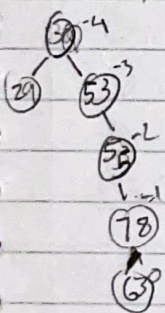 -4
29 53 -3
55 -2
-1
78
63 0